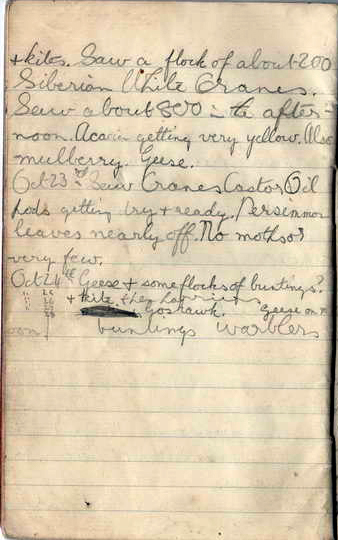 + kites. Saw a flock of about 200
Siberian White Cranes.
Saw about 800 in the after-
noon. Acacia getting very yellow. Also
mulberry. Geese.
Oct 23rd Saw Cranes Castor Oil
pods getting dry + ready. Persimmon
leaves nearly off. No moths or
very few.
Oct 24th Geese + some flocks of buntings?
+ kite, + hen harriers
Goshawk. geese on
buntings warblers